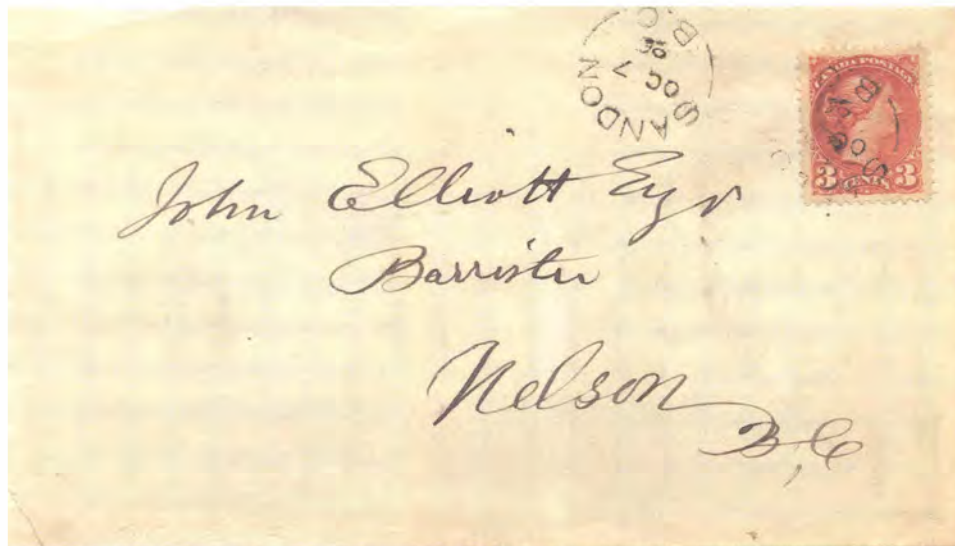 SANDON
OC 7
96
B.C
CANADA POSTAGE
3 CENTS 3
John Elliott Esqr
Barrister
Nelson
B,C